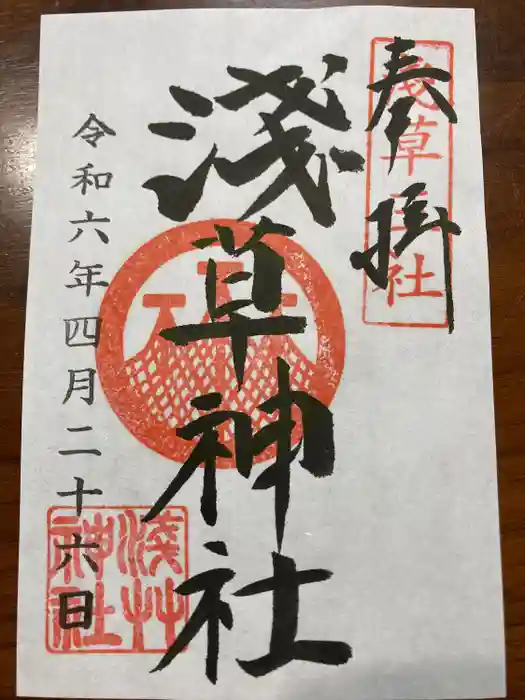 奉拝
淺草三社
淺草神社
令和六年四月二十六日
淺草
神社